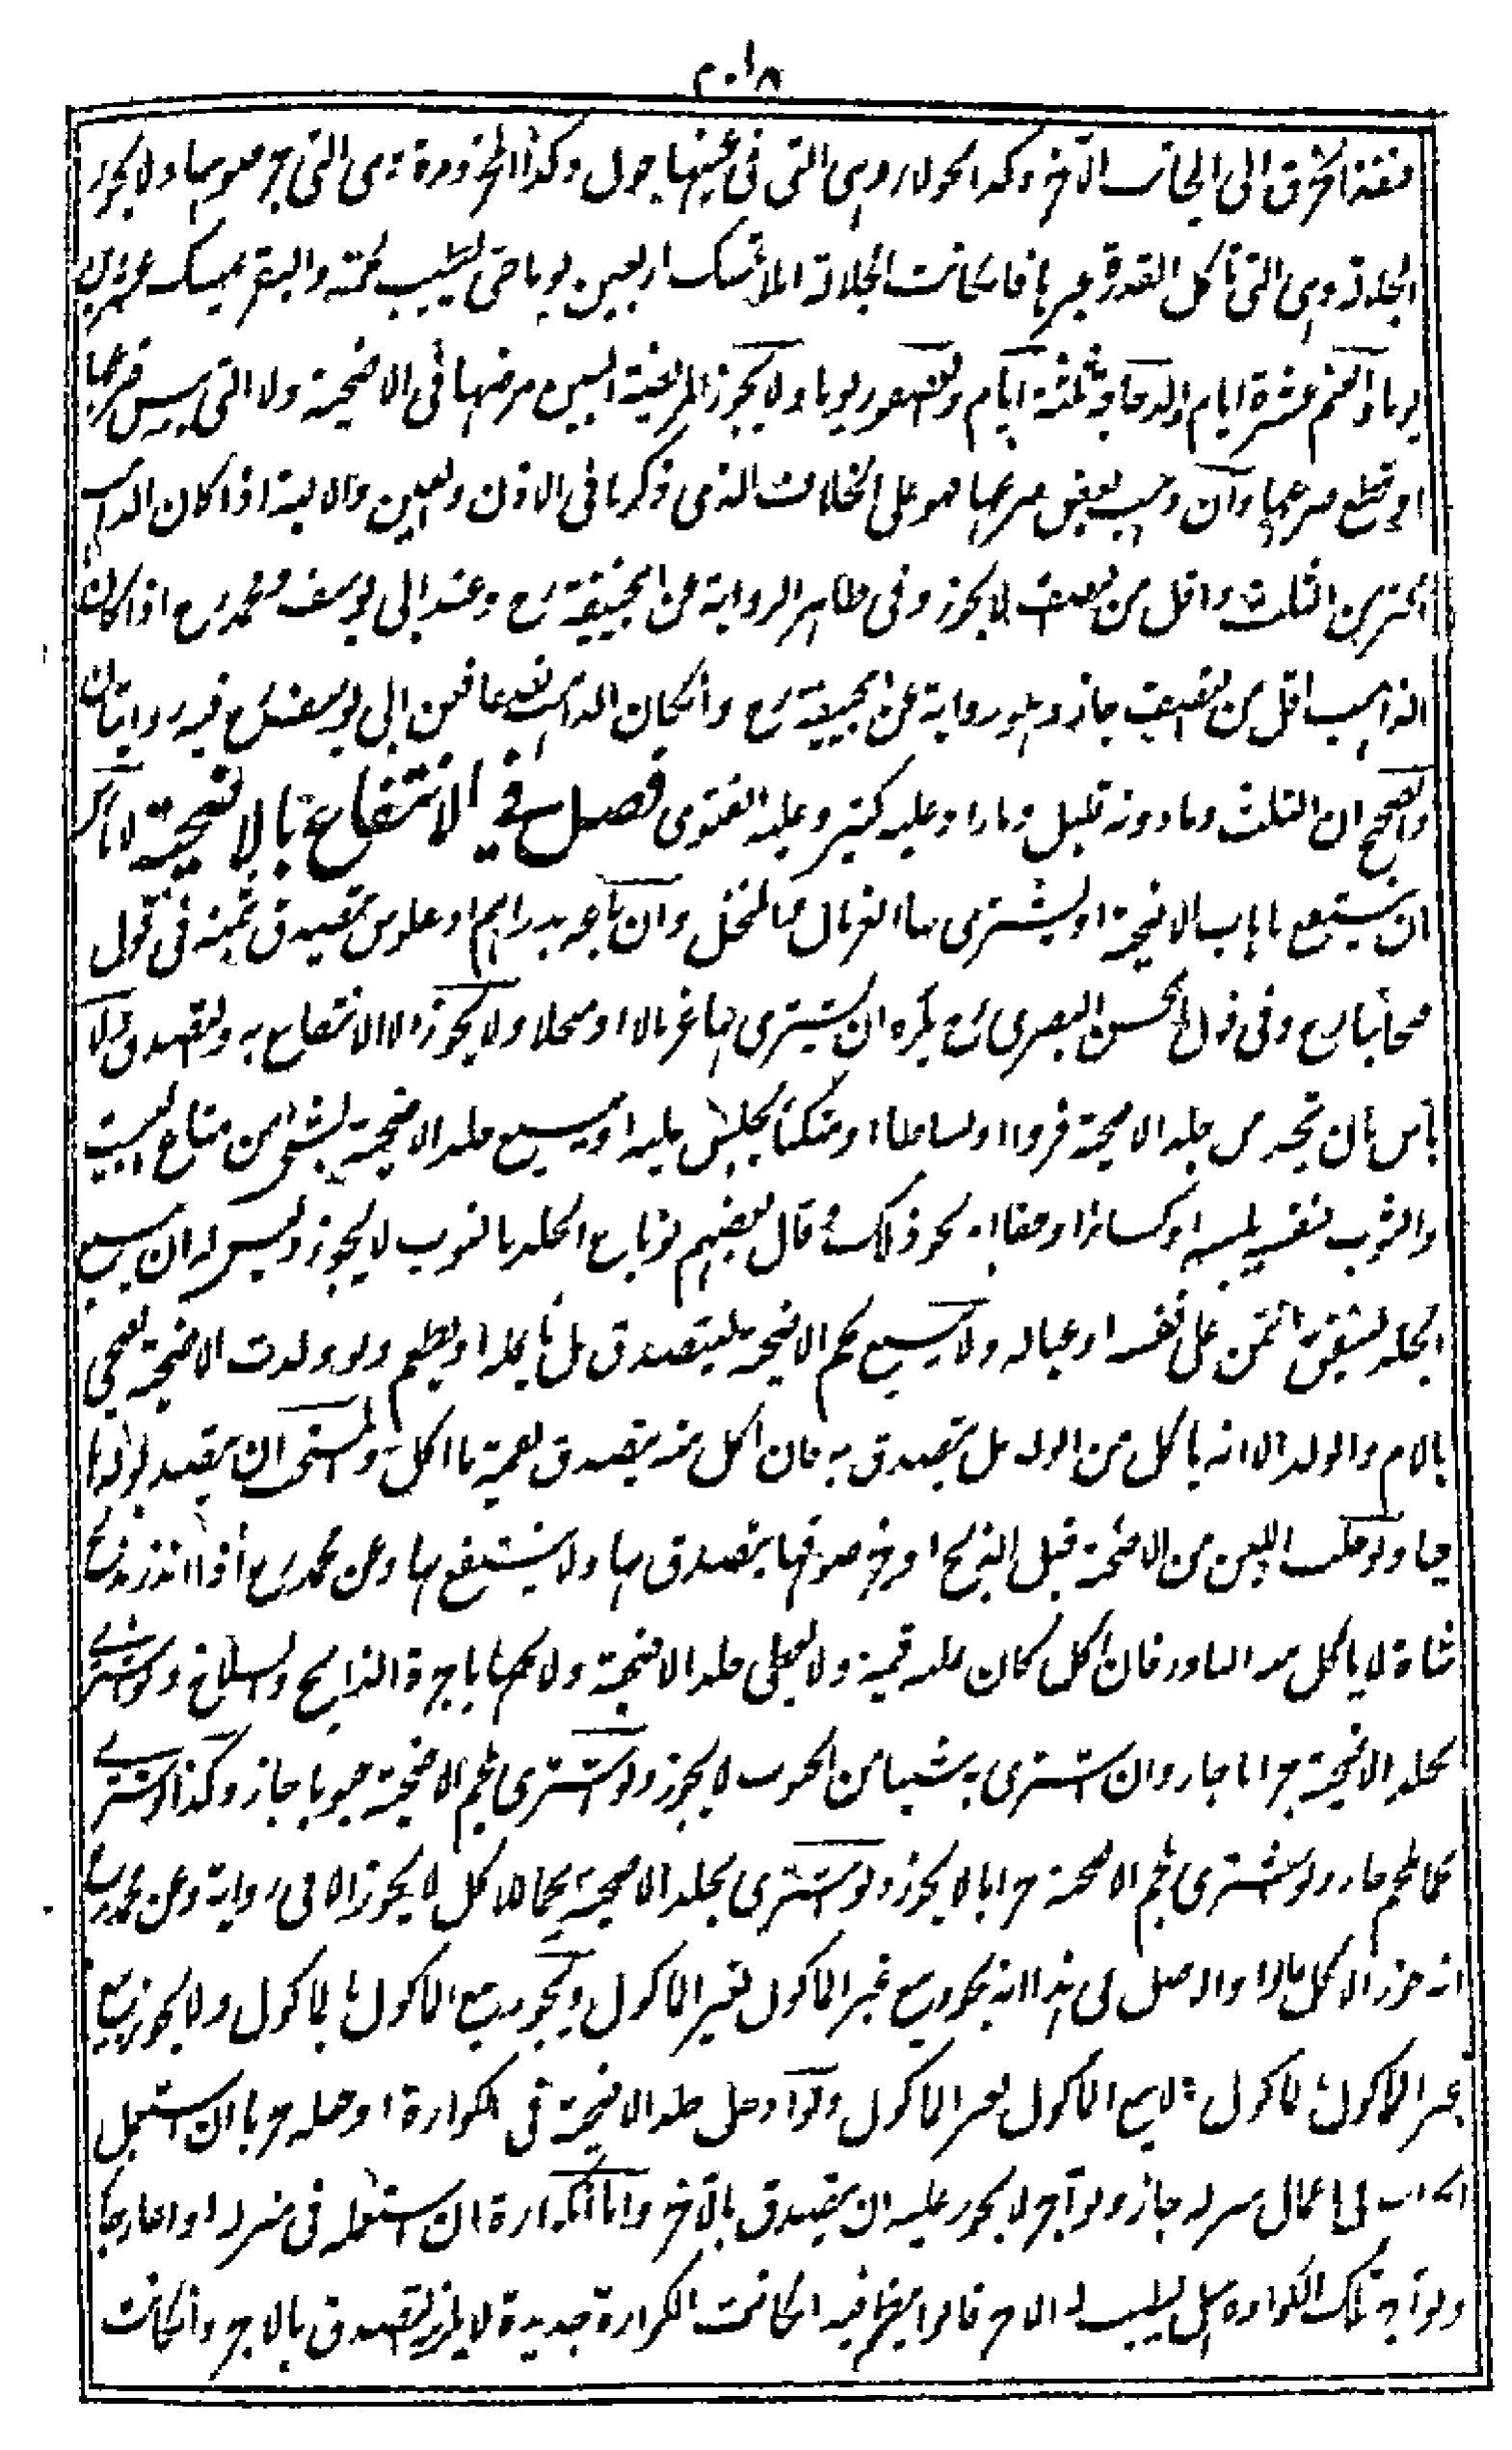 ٢٠١٨
منفذ الخرق الى الجانب الآخر وكذا الحولاء وهى التى فى عينها حول وكذا المجزوزة وهى التى جز صوفها ولا يجوز
الجلالة وهى التى تأكل العذرة غيرها فان كانت الجلالة ابلا تمسك اربعين يوما حتى يطيب لحمه والبقر يمسك عشرين
يوما والغنم عشرة ايام والدجاجة ثلثة ايام والعصفور يوما ولا يجوز المريضة البين مرضها فى الاضحية ولا التى يبس ضرعها
او قطع ضرعها وان ذهب بعض ضرعها فهو على الخلاف الذى ذكرنا فى الاذن والعين والالية اذا كان الذاهب
اكثر من الثلث واقل من نصف لا يجوز وفى ظاهر الرواية عن ابيحنيفة رح وعند ابى يوسف ومحمد رح اذا كان
الذاهب اقل من نصف جاز وهو رواية عن ابيحنيفة رح وانكان الذاهب نصفا فعن ابى يوسف رح فيه روايتان
والصحيح ان الثلث وما دونه قليل وما زاد عليه كثير وعليه الفتوى فصل فى الانتفاع بالاضحية لا بأس
ان ينتفع باهاب الاضحية او يشترى بها الغربال والمنخل وان باعه بدراهم او فلوس يتصدق بثمنه فى قول
اصحابنا رح وفى قول الحسن البصرى رح يكره ان يشترى بها غربالا او منخلا ولا يجوز الا الانتفاع به والتصدق ولا
بأس بان يتخذ من جلد الاضحية فروا او بساطا او متكئا يجلس عليه او يبيع جلد الاضحية بشئ من متاع البيت
والثوب لنفسه يلبسه او كساء او خفا او نحو ذلك وقال بعضهم لو باع الجلد بالثوب لا يجوز وليس له ان يبيع
الجلد لينفق الثمن على نفسه او عياله ولا يبيع لحم الاضحية ليتصدق بل يأكله او يطعم ولو ولدت الاضحية يضحى
بالام والولد الا انه لا يأكل من الولد بل يتصدق به فان اكل منه يتصدق بقيمة ما اكل والمستحب ان يتصدق بولدها
حيا ولو حلب اللبن من الاضحية قبل الذبح او جز صوفها يتصدق بها ولا ينتفع بها وعن محمد رح اذا نذر بذبح
شاة لا يأكل منه الناذر فان اكل كان عليه قيمته ولا يعطى جلد الاضحية ولا لحمها باجرة الذابح والسلاخ ولو اشترى
بجلد الاضحية جرابا جاز وان اشترى به شيئا من الحبوب لا يجوز ولو اشترى بلحم الاضحية حبوبا جاز وكذا لو اشترى
لحما بلحم جاز ولو اشترى بلحم الاضحية جرابا لا يجوز ولو اشترى بجلد الاضحية لحما للاكل لا يجوز الا فى رواية وعن محمد رح
انه جوز الاكل والاصل فى هذا انه يجوز بيع غير المأكول بغير المأكول ويجوز بيع المأكول بالمأكول ولا يجوز بيع
غير المأكول بالمأكول ولا بيع المأكول بغير المأكول ولو ادخل جلد الاضحية فى الكوارة او جعله جرابا ان استعمل
الجراب فى اعمال منزله جاز ولو آجر لا يجوز عليه ان يتصدق بالاجر واما الكوارة ان استعمله فى منزله او اعار جاز
ولو آجر تلك الكوارة هل يطيب له الاجر قالوا ينظر فيه ان كانت الكوارة جديدة لا يلزمه التصدق بالاجر وانكانت